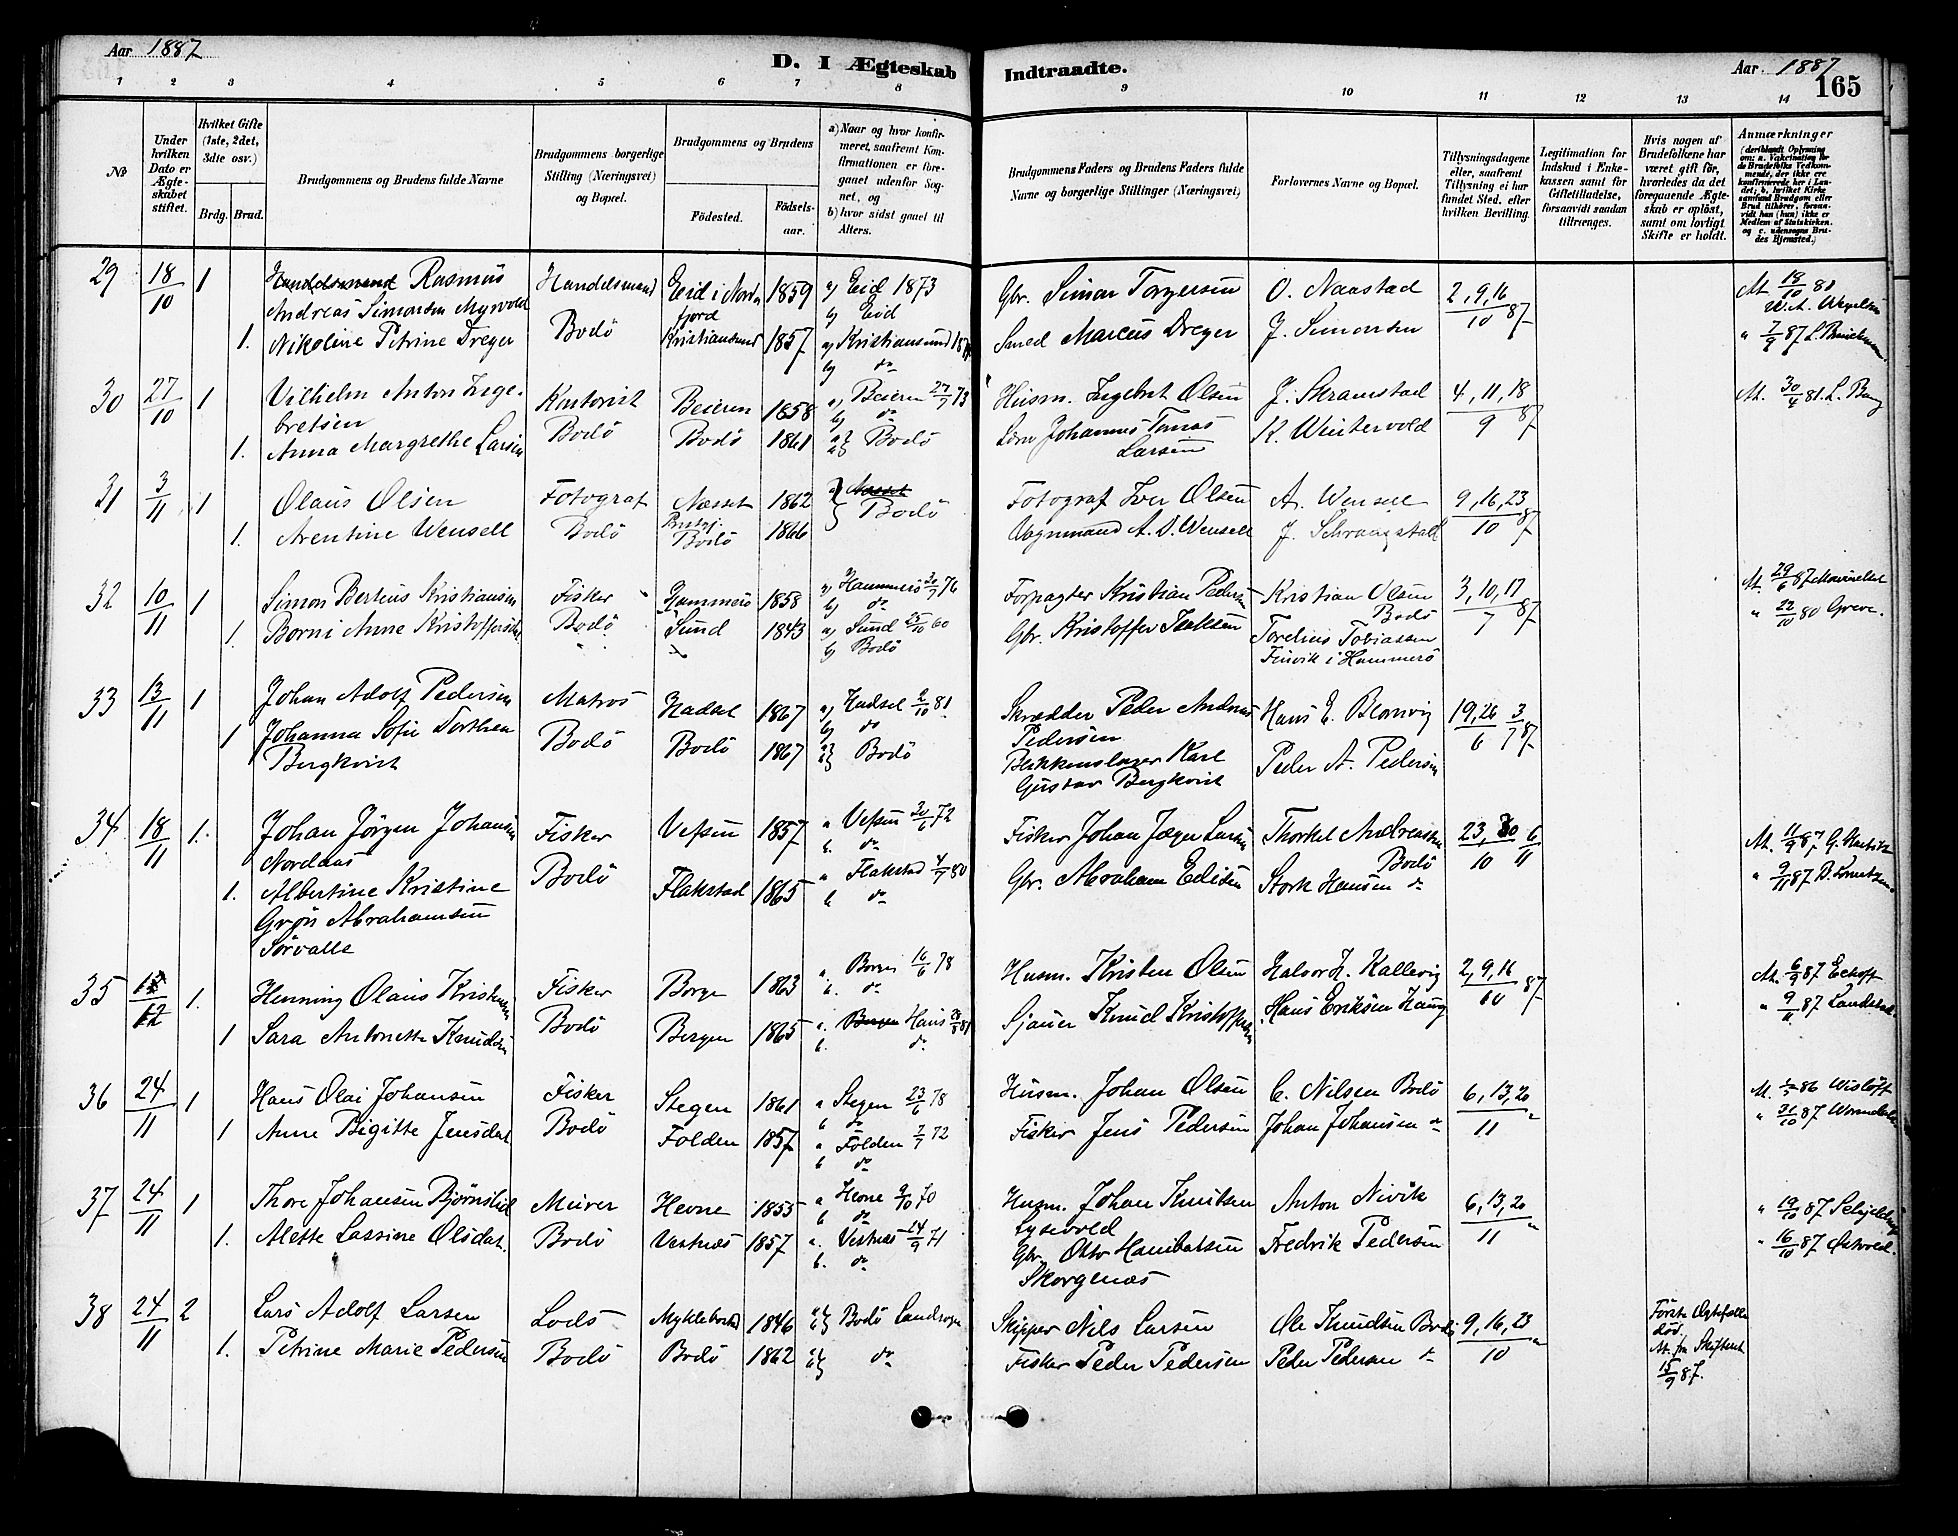 Aar 1887
D. I Ægteskab Indtraadte.
Aar 1887
165
1 2 3 4 5 6 7 8 9 10 11 12 13 14
No
Under hvilken Dato er Ægteskabet stiftet.
Hvilket Gifte (1ste, 2det, 3dte osv.)
Brdg. Brud.
Brudgommens og Brudens fulde Navne
Brudgommens borgerlige Stilling (Næringsvei) og Bopæl.
Brudgommens og Brudens
Födested.
Födselsaar.
a) Naar og hvor konfirmeret, saafremt Konfirmationen er foregaaet udenfor Sognet, og
b) hvor sidst gaaet til Alters.
Brudgommens Faders og Brudens Faders fulde Navne og borgerlige Stillinger (Næringsvei)
Forlovernes Navne og Bopæl.
Tillysningsdagene eller, saafremt Tillysning ei har fundet Sted, efter hvilken Bevilling.
Legitimation for Indskud i Enkekassen samt for Giftetilladelse, forsaavidt saadan tiltrænges.
Hvis nogen af Brudefolkene har været gift för, hvorledes da det foregaaende Ægteskab er oplöst, samt om lovligt Skifte er holdt.
Anmærkninger (deriblandt Oplysning om: a. Vakcination for de Brudefolks Vedkommende, der ikke ere konfirmerede her i Landet; b. hvilket Kirkesamfund Brudgom eller Brud tilhörer, forsaavidt han (hun) ikke er Medlem af Statskirken, og c. udensogns Brudes Hjemsted.)
29 18/10 1 Handelsmand Rasmus Handelsmand Eid i Nord- 1859 a) Eid 1873 Gbr. Simon Torgersen O. Naastad 2, 9, 16 At. 18/10 80
Andreas Simonsen Myrvold fjord b) Eid 10 87
1. Nikoline Petrine Dreyer Bodö Kristiansund 1857 a) Kristiansund Smed Marcus Dreyer J. Simonsen " 7/9 87
b) do
30 27/10 1 Vilhelm Anton Inge- Kontorist Beieren 1858 a) Beieren 27/7 73 Husm. Ingebret Olsen J. Skramstad 4, 11, 18 At. 30/4 81. L. Bang
bretsen b) do 9 87
1. Anna Margrethe Larsen Bodö Bodö 1861 Bodö Johannes Tomas K. Wintervold
Larsen
31 3/11 1 Olaus Olsen Fotograf Næsset 1862 Næsset Fotograf Iver Olsen A. Wensell 9, 16, 23
Bodö 10 87
1. Arentine Wensell Bodö Bodö 1866 Vognmand A. O. Wensell J. Schrangstad
32 10/11 1 Simon Bertius Kristiansen Fisker Hammerö 1858 a) Hammerö 76 Forpagter Kristian Pedersen Kristian Olsen 3, 10, 17 At. 29/6 87
b) do Bodö 7 87
1. Borni Anne Kristoffersdat Bodö Sund 1843 a) Sund 25/10 60 Gbr. Kristoffer Isaksen Torelius Tobiassen " 22/10 80 Greve.
b) Bodö Finvik i Hammerö
33 13/11 1 Johan Adolf Pedersen Matros Hadsel 1867 a) Hadsel 2/10 81 Skrædder Peder Andreas Hans E. Blomvig 19, 26 3
b) do Pedersen 6 7 87
1 Johanna Sofie Dorthea Bodö Bodö 1867 Bodö Blikkenslager Karl Peder A. Pedersen
Bergkvist Gustav Bergkvist
34 18/11 1. Johan Jörgen Johansen Fisker Vefsen 1857 a Vefsen 30/6 72 Fisker Johan Jæger Larsen Thorkel Andreassen 23, 30 6 At. 11/9 87
Nordaas b. do Bodö 10 11
1. Albertine Kristine Bodö Flakstad 1865 a Flakstad 4/7 80 Gbr. Abraham Edisen Stork Hansen do " 9/11 87
Grön Abrahamsen b do
Sörvalle
35 12 1. Henning Olaus Kristensen Fisker Borge 1863 a. Borge 16/6 78 Husm. Kristen Olsen Halvor H. Kallevig 2, 9, 16 At. 6/9 87 Eckoff
b. do 10 87
1 Sara Antonette Knudsen Bodö Bergen 1865 a. Bergen Haus 28/8 81 Sjauer Knud Kristoffersen Hans Eriksen Haug " 9/6 87 Landstad
b. do
36 24/11 1 Hans Olai Johansen Fisker Stegen 1861 a Stegen 23/6 78 Husm. Johan Olsen C. Nilsen Bodö 6, 13, 20 At. 86 Wislöff
b do 11 "
1 Anne Bigitte Jensdat Bodö Folden 1857 a Folden 7/7 72 Fisker Jens Pedersen Johan Johansen do " 31/10 87
b do
37 24/11 1 Thore Johansen Björnslid Murer Hevne 1855 a Hevne 9/10 70 Husm. Johan Knutsen Anton Nivik 6, 13, 20 " 19/10 87
b do Lysevold 11 "
1. Alette Lassine Olsdat. Bodö Vestnæs 1857 a. Vestnæs 24/9 71 Gbr. Hanibalsen Fredrik Pedersen " 16/10 87
b. do Skorgenæs
38 24/11 2 Lars Adolf Larsen Lods Myklebostad 1846 Bodö Landsogn Skipper Nils Larsen Ole Knudsen Bodö 9, 16, 23 Förste Ægtefælle
10 " död.
1. Petrine Marie Pedersen Bodö Bodö 1862 do Fisker Peder Pedersen Peder Pedersen do At. fra Skifteret
15/9 87.